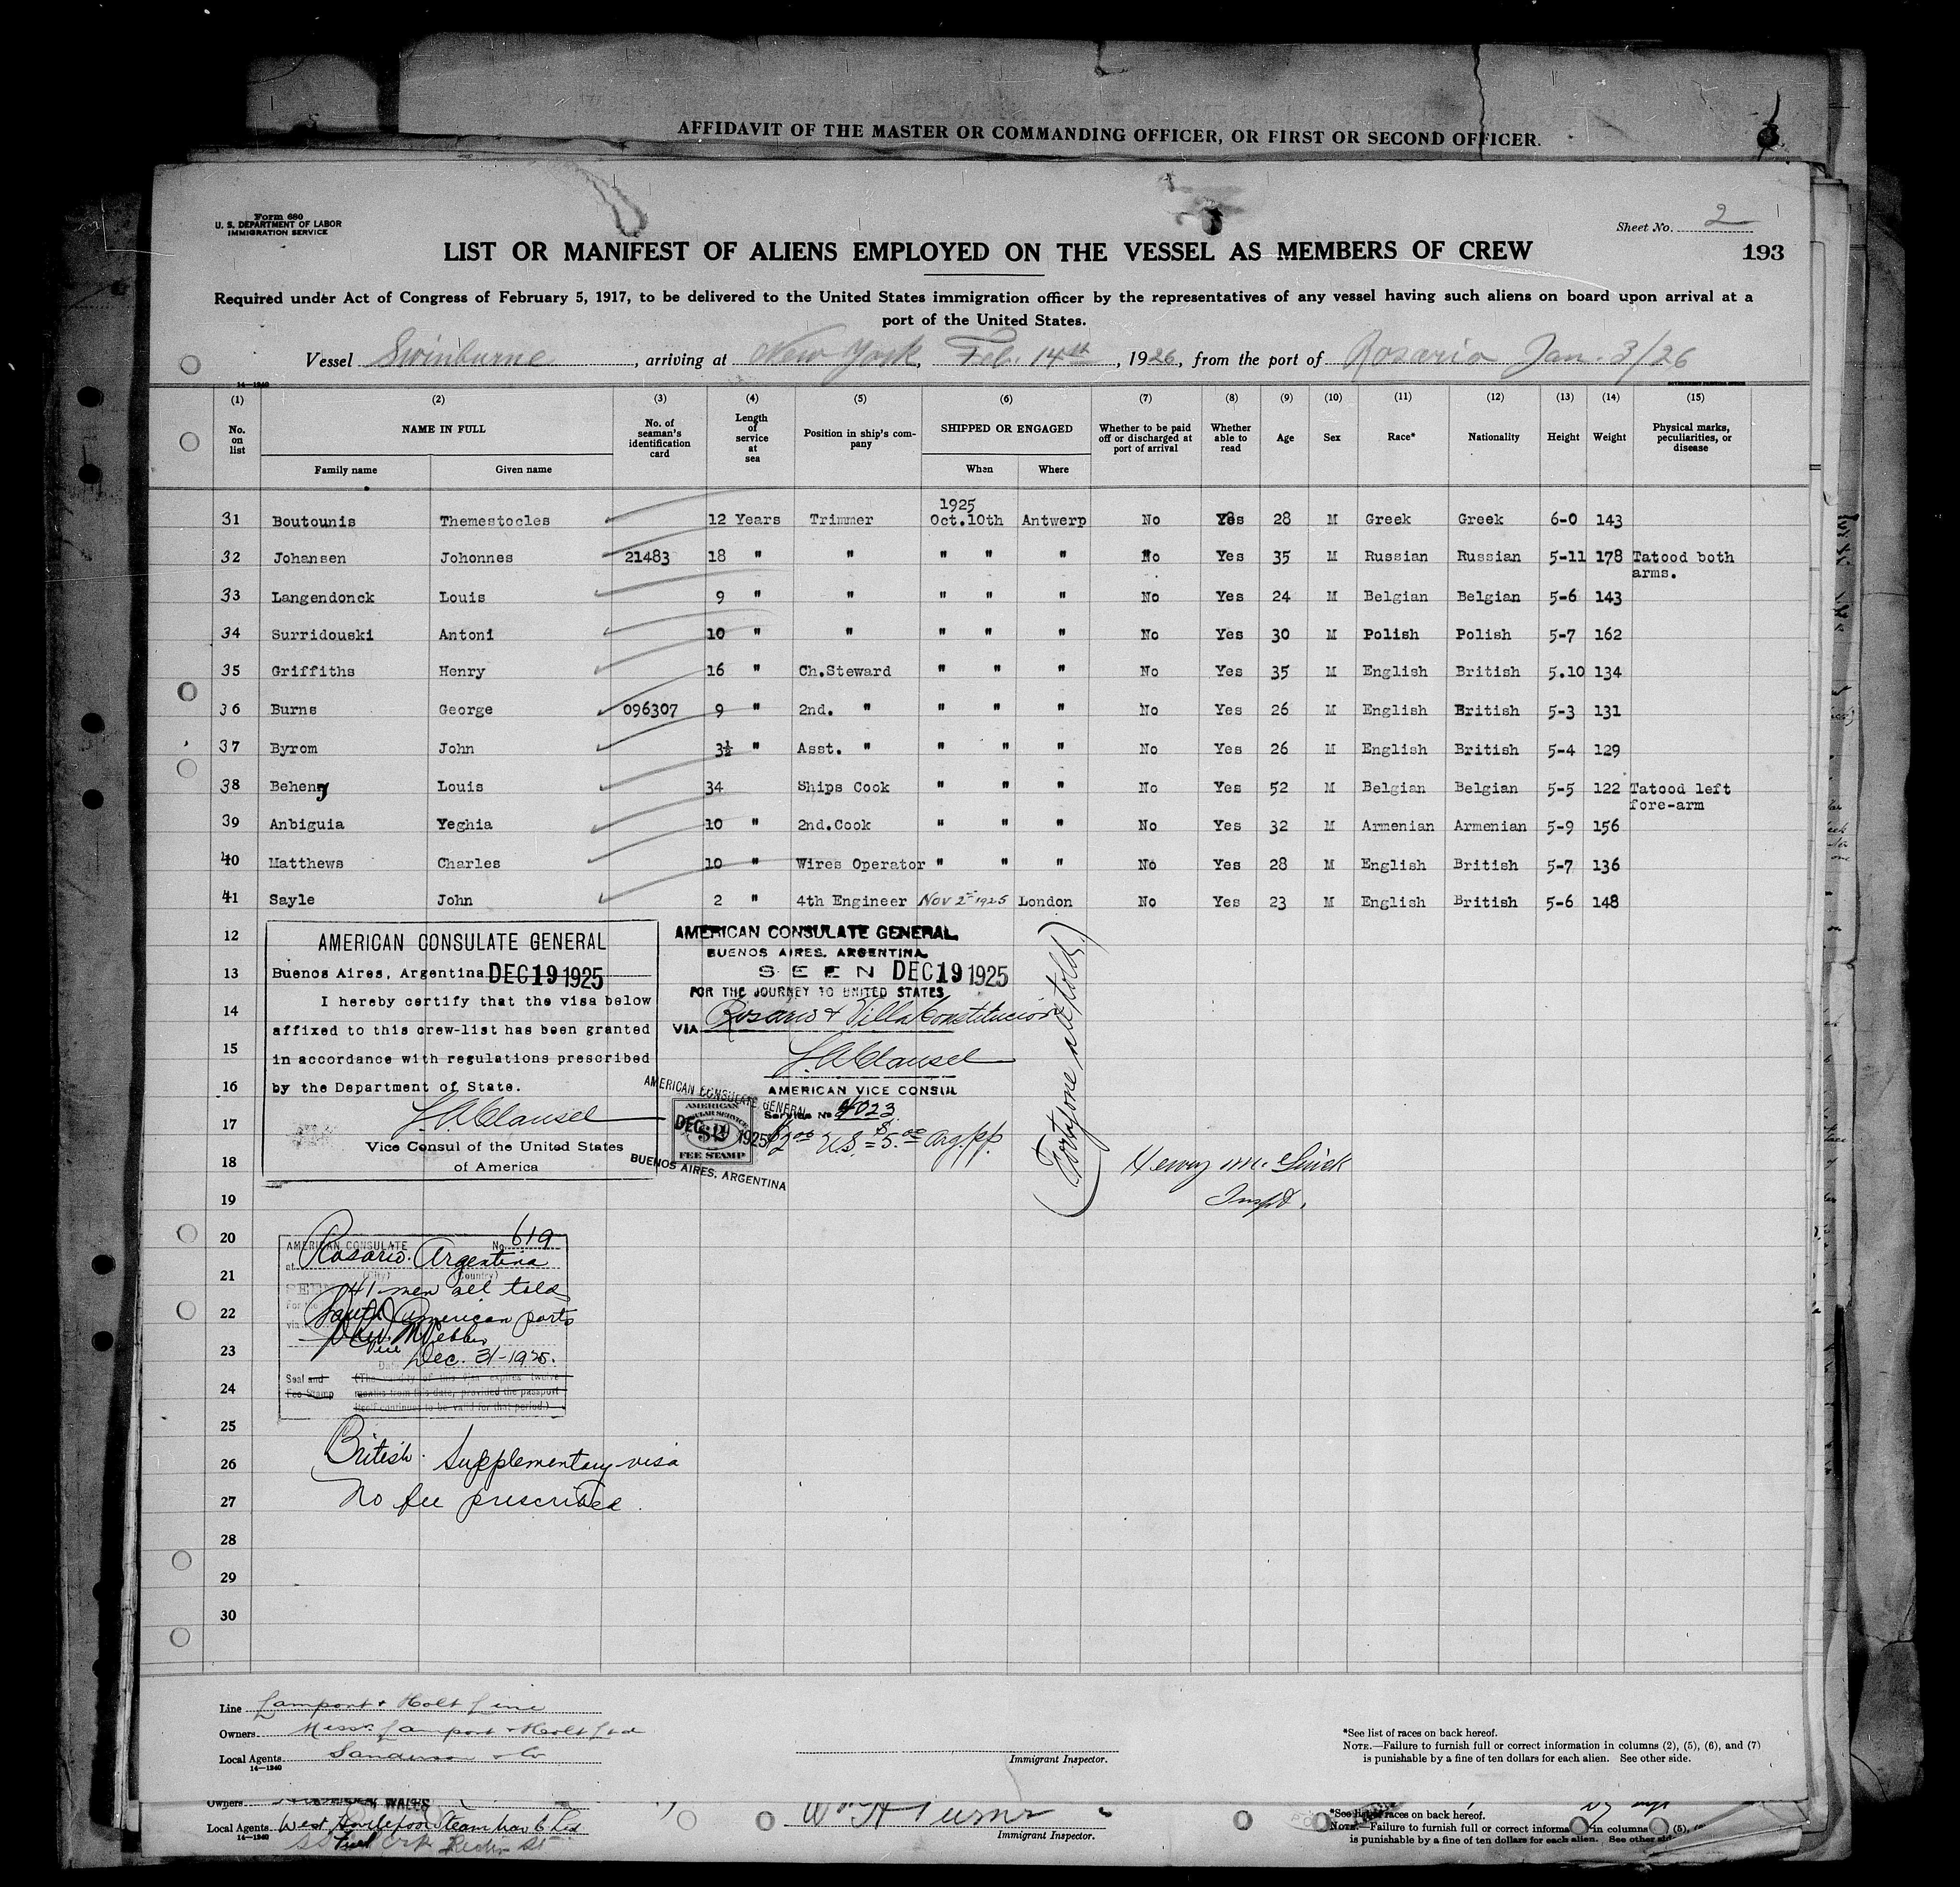 AFFIDAVIT OF THE MASTER OR COMMANDING OFFICER, OR FIRST OR SECOND OFFICER.
Form 680
U. S. DEPARTMENT OF LABOR
IMMIGRATION SERVICE
Sheet No. 2
LIST OR MANIFEST OF ALIENS EMPLOYED ON THE VESSEL AS MEMBERS OF CREW
193
Required under Act of Congress of February 5, 1917, to be delivered to the United States immigration officer by the representatives of any vessel having such aliens on board upon arrival at a
port of the United States.
Vessel Swinburne, arriving at New York, Feb. 14th, 1926, from the port of Rosario Jan. 3/26
14—1240
(1) (2) (3) (4) (5) (6) (7) (8) (9) (10) (11) (12) (13) (14) (15)
No. on list NAME IN FULL Family name Given name No. of seaman's identification card Length of service at sea Position in ship's company SHIPPED OR ENGAGED When Where Whether to be paid off or discharged at port of arrival Whether able to read Age Sex Race* Nationality Height Weight Physical marks, peculiarities, or disease
1925
31 Boutounis Themestocles 12 Years Trimmer Oct.10th Antwerp No Yes 28 M Greek Greek 6-0 143
32 Johansen Johonnes 21483 18 " " " " " No Yes 35 M Russian Russian 5-11 178 Tatood both
arms.
33 Langendonck Louis 9 " " " " " No Yes 24 M Belgian Belgian 5-6 143
34 Surridouski Antoni 10 " " " " " No Yes 30 M Polish Polish 5-7 162
35 Griffiths Henry 16 " Ch.Steward " " " No Yes 35 M English British 5.10 134
36 Burns George 096307 9 " 2nd. " " " " No Yes 26 M English British 5-3 131
37 Byrom John 3½ " Asst. " " " " No Yes 26 M English British 5-4 129
38 Beheny Louis 34 Ships Cook " " " No Yes 52 M Belgian Belgian 5-5 122 Tatood left
fore-arm
39 Anbiguia Yeghia 10 " 2nd.Cook " " " No Yes 32 M Armenian Armenian 5-9 156
40 Matthews Charles 10 " Wires Operator " " " No Yes 28 M English British 5-7 136
41 Sayle John 2 " 4th Engineer Nov 2 1925 London No Yes 23 M English British 5-6 148
12
13
14
15
16
17
18
19
20
21
22
23
24
25
26
27
28
29
30
AMERICAN CONSULATE GENERAL
Buenos Aires, Argentina DEC 19 1925
I hereby certify that the visa below
affixed to this crew-list has been granted
in accordance with regulations prescribed
by the Department of State.
Vice Consul of the United States
of America
AMERICAN CONSULATE GENERAL
BUENOS AIRES, ARGENTINA
SEEN DEC 19 1925
FOR THE JOURNEY TO UNITED STATES
VIA Rosario & Villa Constitucion
AMERICAN VICE CONSUL
Service No 4023
$2.00 US = $5.00 Arg. pp.
AMERICAN CONSULATE GENERAL
AMERICAN
DEC 19 1925
$2
FEE STAMP
BUENOS AIRES, ARGENTINA
(Forty one all told)
Henry M.
Inspt.
AMERICAN CONSULATE No. 619
at Rosario. Argentina
(City) (Country)
SEEN 41 men all told
For the
via South American ports
Vice
Date Dec. 31-1925.
Seal and (The validity of this visa expires twelve
Fee Stamp months from this date, provided the passport
itself continues to be valid for that period.)
British Supplementary visa
No fee prescribed.
Line Lamport & Holt Line
Owners Messrs Lamport & Holt Ltd
Local Agents Sanderson & Co
14—1240
Immigrant Inspector.
*See list of races on back hereof.
NOTE.—Failure to furnish full or correct information in columns (2), (5), (6), and (7)
is punishable by a fine of ten dollars for each alien. See other side.
Owners
Local Agents West Hartlepool Steam Nav Co Ltd
14—1240
Wm H Turner
Immigrant Inspector.
*See list of races on back hereof.
NOTE.—Failure to furnish full or correct informa in columns (5),
is punishable by a fine of ten dollars for each alien. See other sid